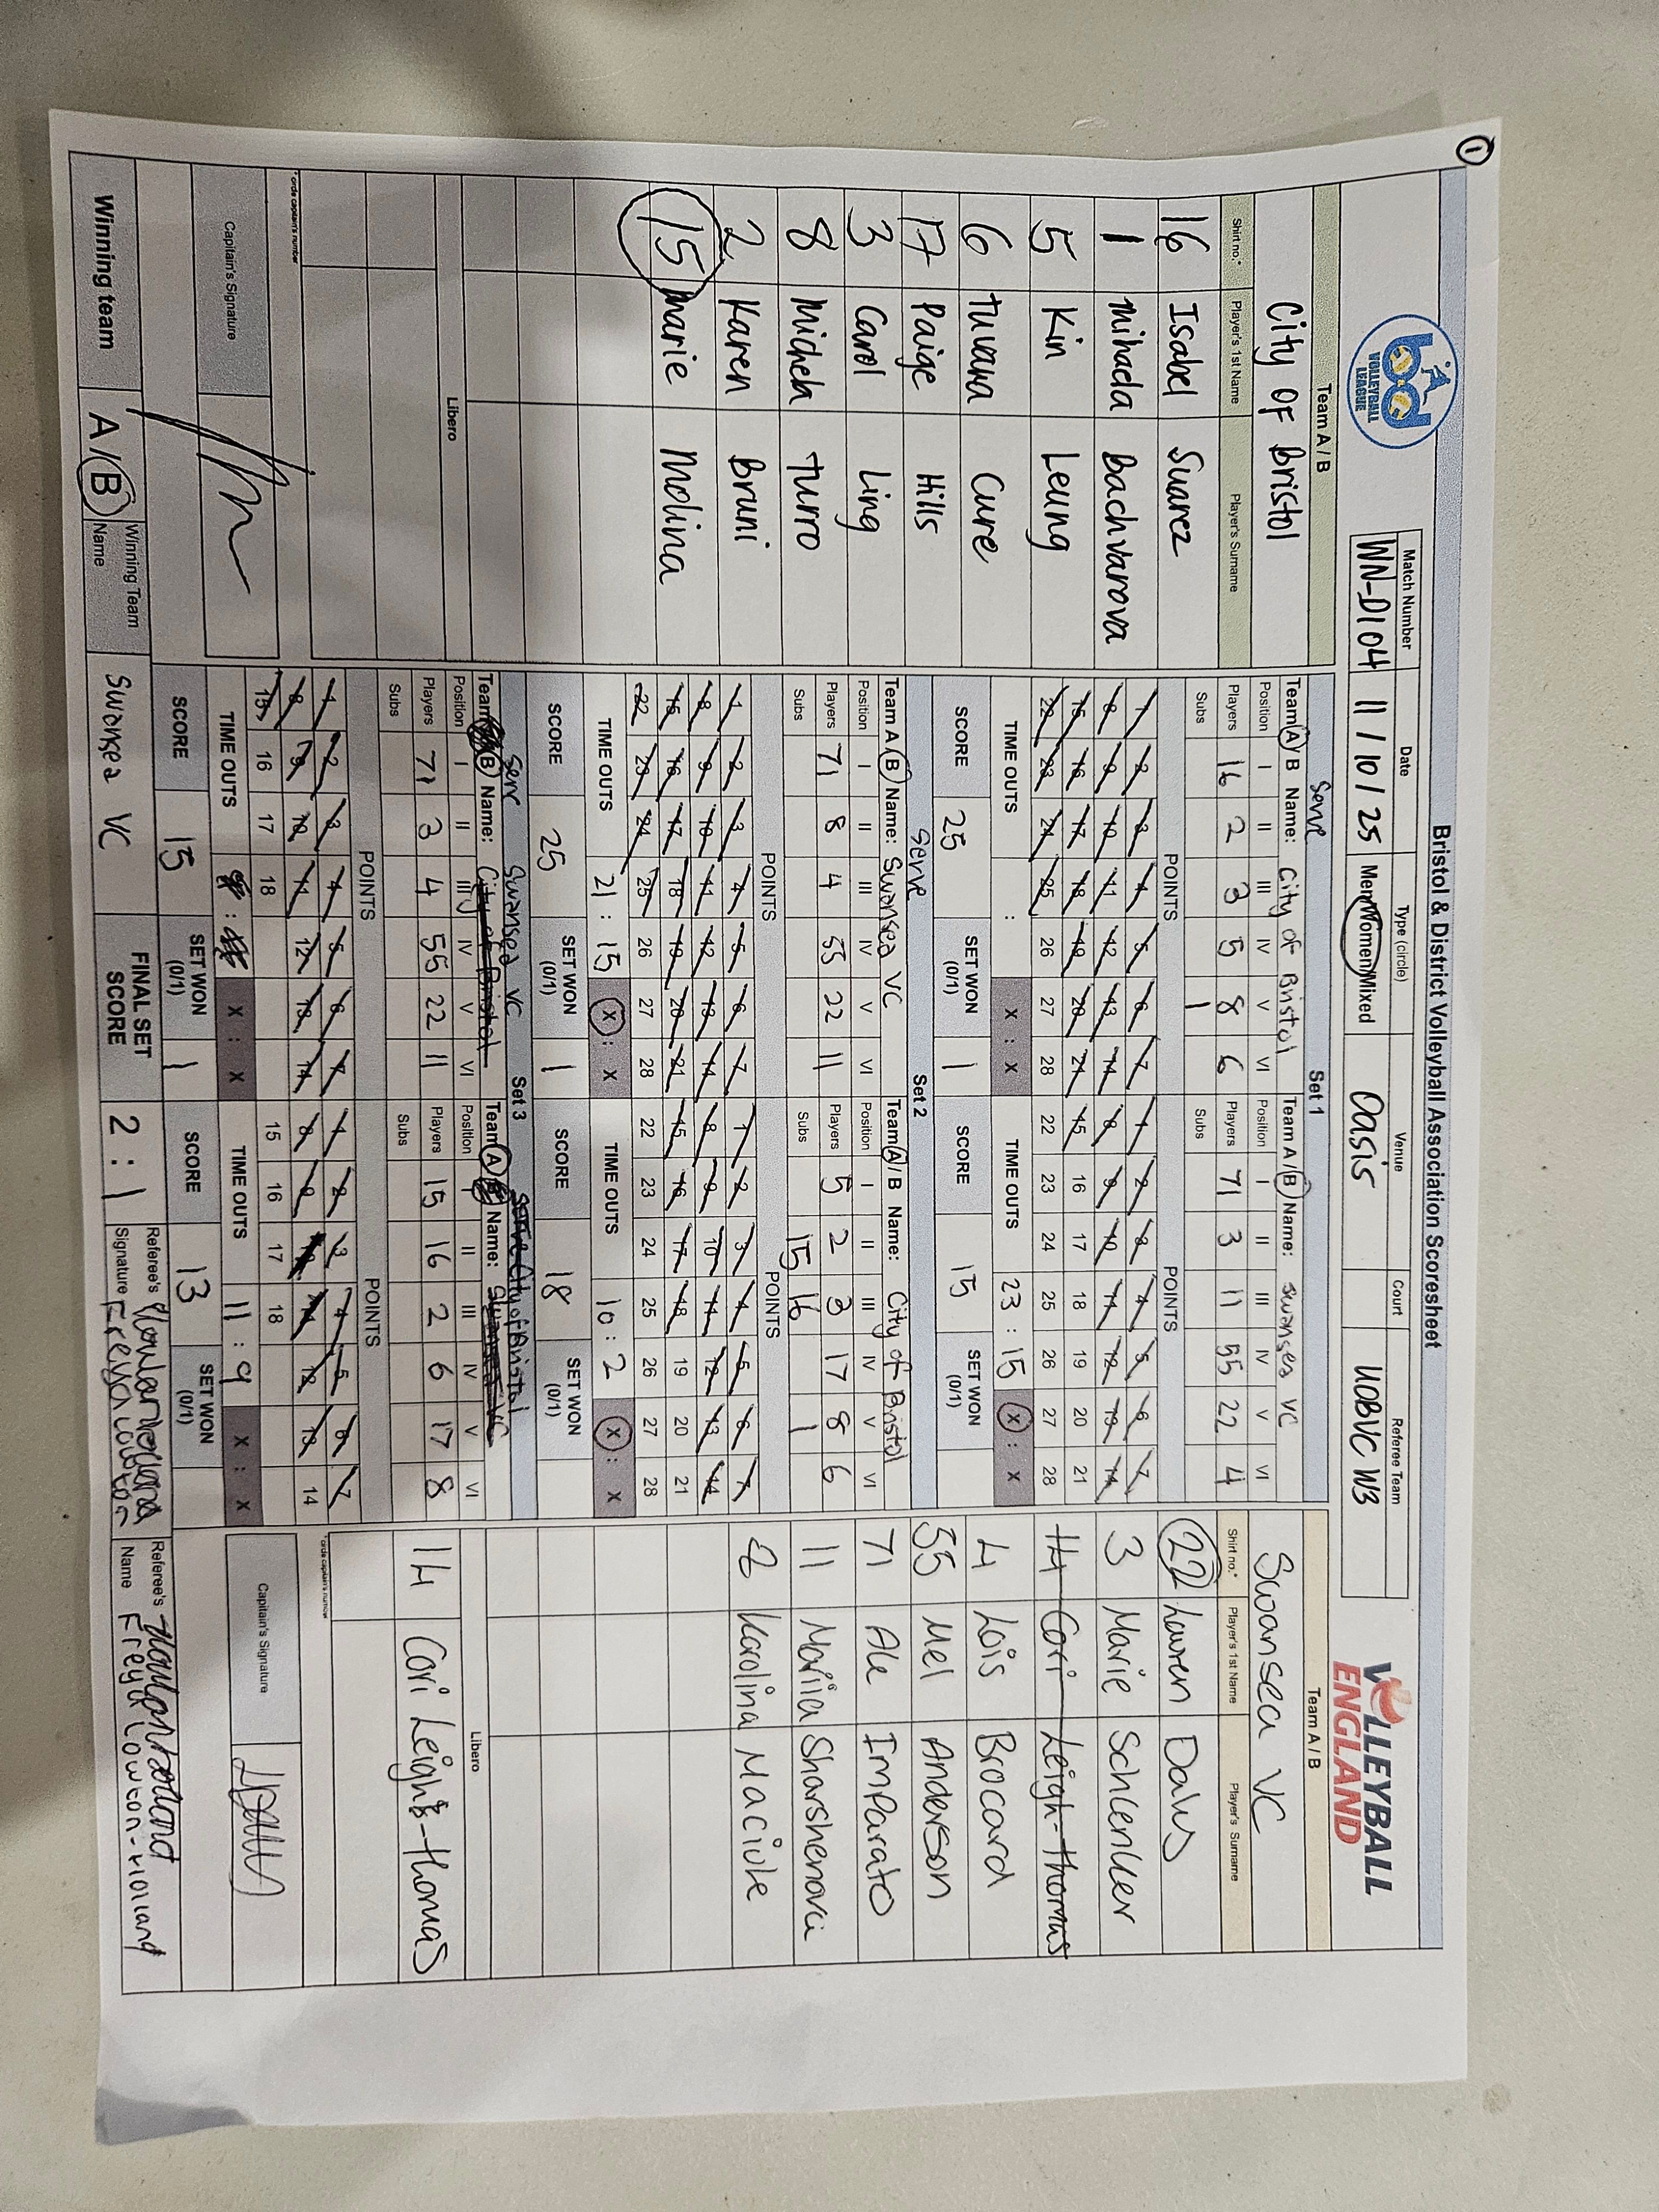 1
Bristol & District Volleyball Association Scoresheet
bd VOLLEYBALL LEAGUE
Match Number Date Type (circle) Venue Court Referee Team
WN-D104 11 / 10 / 25 Men/Women/Mixed Oasis UOBVC W3
VOLLEYBALL ENGLAND
Team A / B
City OF Bristol
Shirt no.* Player's 1st Name Player's Surname
16 Isabel Suarez
1 mihaela Bachvarova
5 Kin Leung
6 Tuvana Cure
17 Paige Hills
3 Carol Ling
8 Michela Turro
2 Karen Bruni
15 Marie Molina
Libero
*circle captain's number
Capitain's Signature
Set 1
Serve
Team A / B Name: City of Bristol
Position I II III IV V VI
Players 16 2 3 5 8 6
Subs 1
POINTS
1 2 3 4 5 6 7
8 9 10 11 12 13 14
15 16 17 18 19 20 21
22 23 24 25 26 27 28
TIME OUTS : X : X
SCORE 25 SET WON (0/1) 1
Team A / B Name: Swansea VC
Position I II III IV V VI
Players 71 3 11 55 22 4
Subs
POINTS
1 2 3 4 5 6 7
8 9 10 11 12 13 14
15 16 17 18 19 20 21
22 23 24 25 26 27 28
TIME OUTS 23 : 15 X : X
SCORE 15 SET WON (0/1)
Set 2
Serve
Team A / B Name: Swansea VC
Position I II III IV V VI
Players 71 8 4 55 22 11
Subs
POINTS
1 2 3 4 5 6 7
8 9 10 11 12 13 14
15 16 17 18 19 20 21
22 23 24 25 26 27 28
TIME OUTS 21 : 15 X : X
SCORE 25 SET WON (0/1) 1
Team A / B Name: City of Bristol
Position I II III IV V VI
Players 5 2 3 17 8 6
Subs 15 16 1
POINTS
1 2 3 4 5 6 7
8 9 10 11 12 13 14
15 16 17 18 19 20 21
22 23 24 25 26 27 28
TIME OUTS 10 : 2 X : X
SCORE 18 SET WON (0/1)
Set 3
Serv Swansea VC
Team B Name: City of Bristol
Position I II III IV V VI
Players 71 3 4 55 22 11
Subs
POINTS
1 2 3 4 5 6 7
8 9 10 11 12 13 14
15 16 17 18
TIME OUTS : X : X
SCORE 15 SET WON (0/1) 1
Serve City of Bristol
Team A / B Name: Swansea VC
Position I II III IV V VI
Players 15 16 2 6 17 8
Subs
POINTS
1 2 3 4 5 6 7
8 9 10 11 12 13 14
15 16 17 18
TIME OUTS 11 : 9 X : X
SCORE 13 SET WON (0/1)
Team A / B
Swansea VC
Shirt no.* Player's 1st Name Player's Surname
22 Lauren Daly
3 Marie Schlenker
14 Cori Leigh-Thomas
4 Lois Brocard
55 Mel Anderson
71 Ale Imparato
11 Mariia Sharshenova
8 Karolina Maciule
Libero
14 Cori Leigh-Thomas
*circle captain's number
Capitain's Signature
Winning team A / B Winning Team Name Swansea VC FINAL SET SCORE 2 : 1
Referee's Signature Freya Lowton-
Referee's Name Freya Lowton-Holland